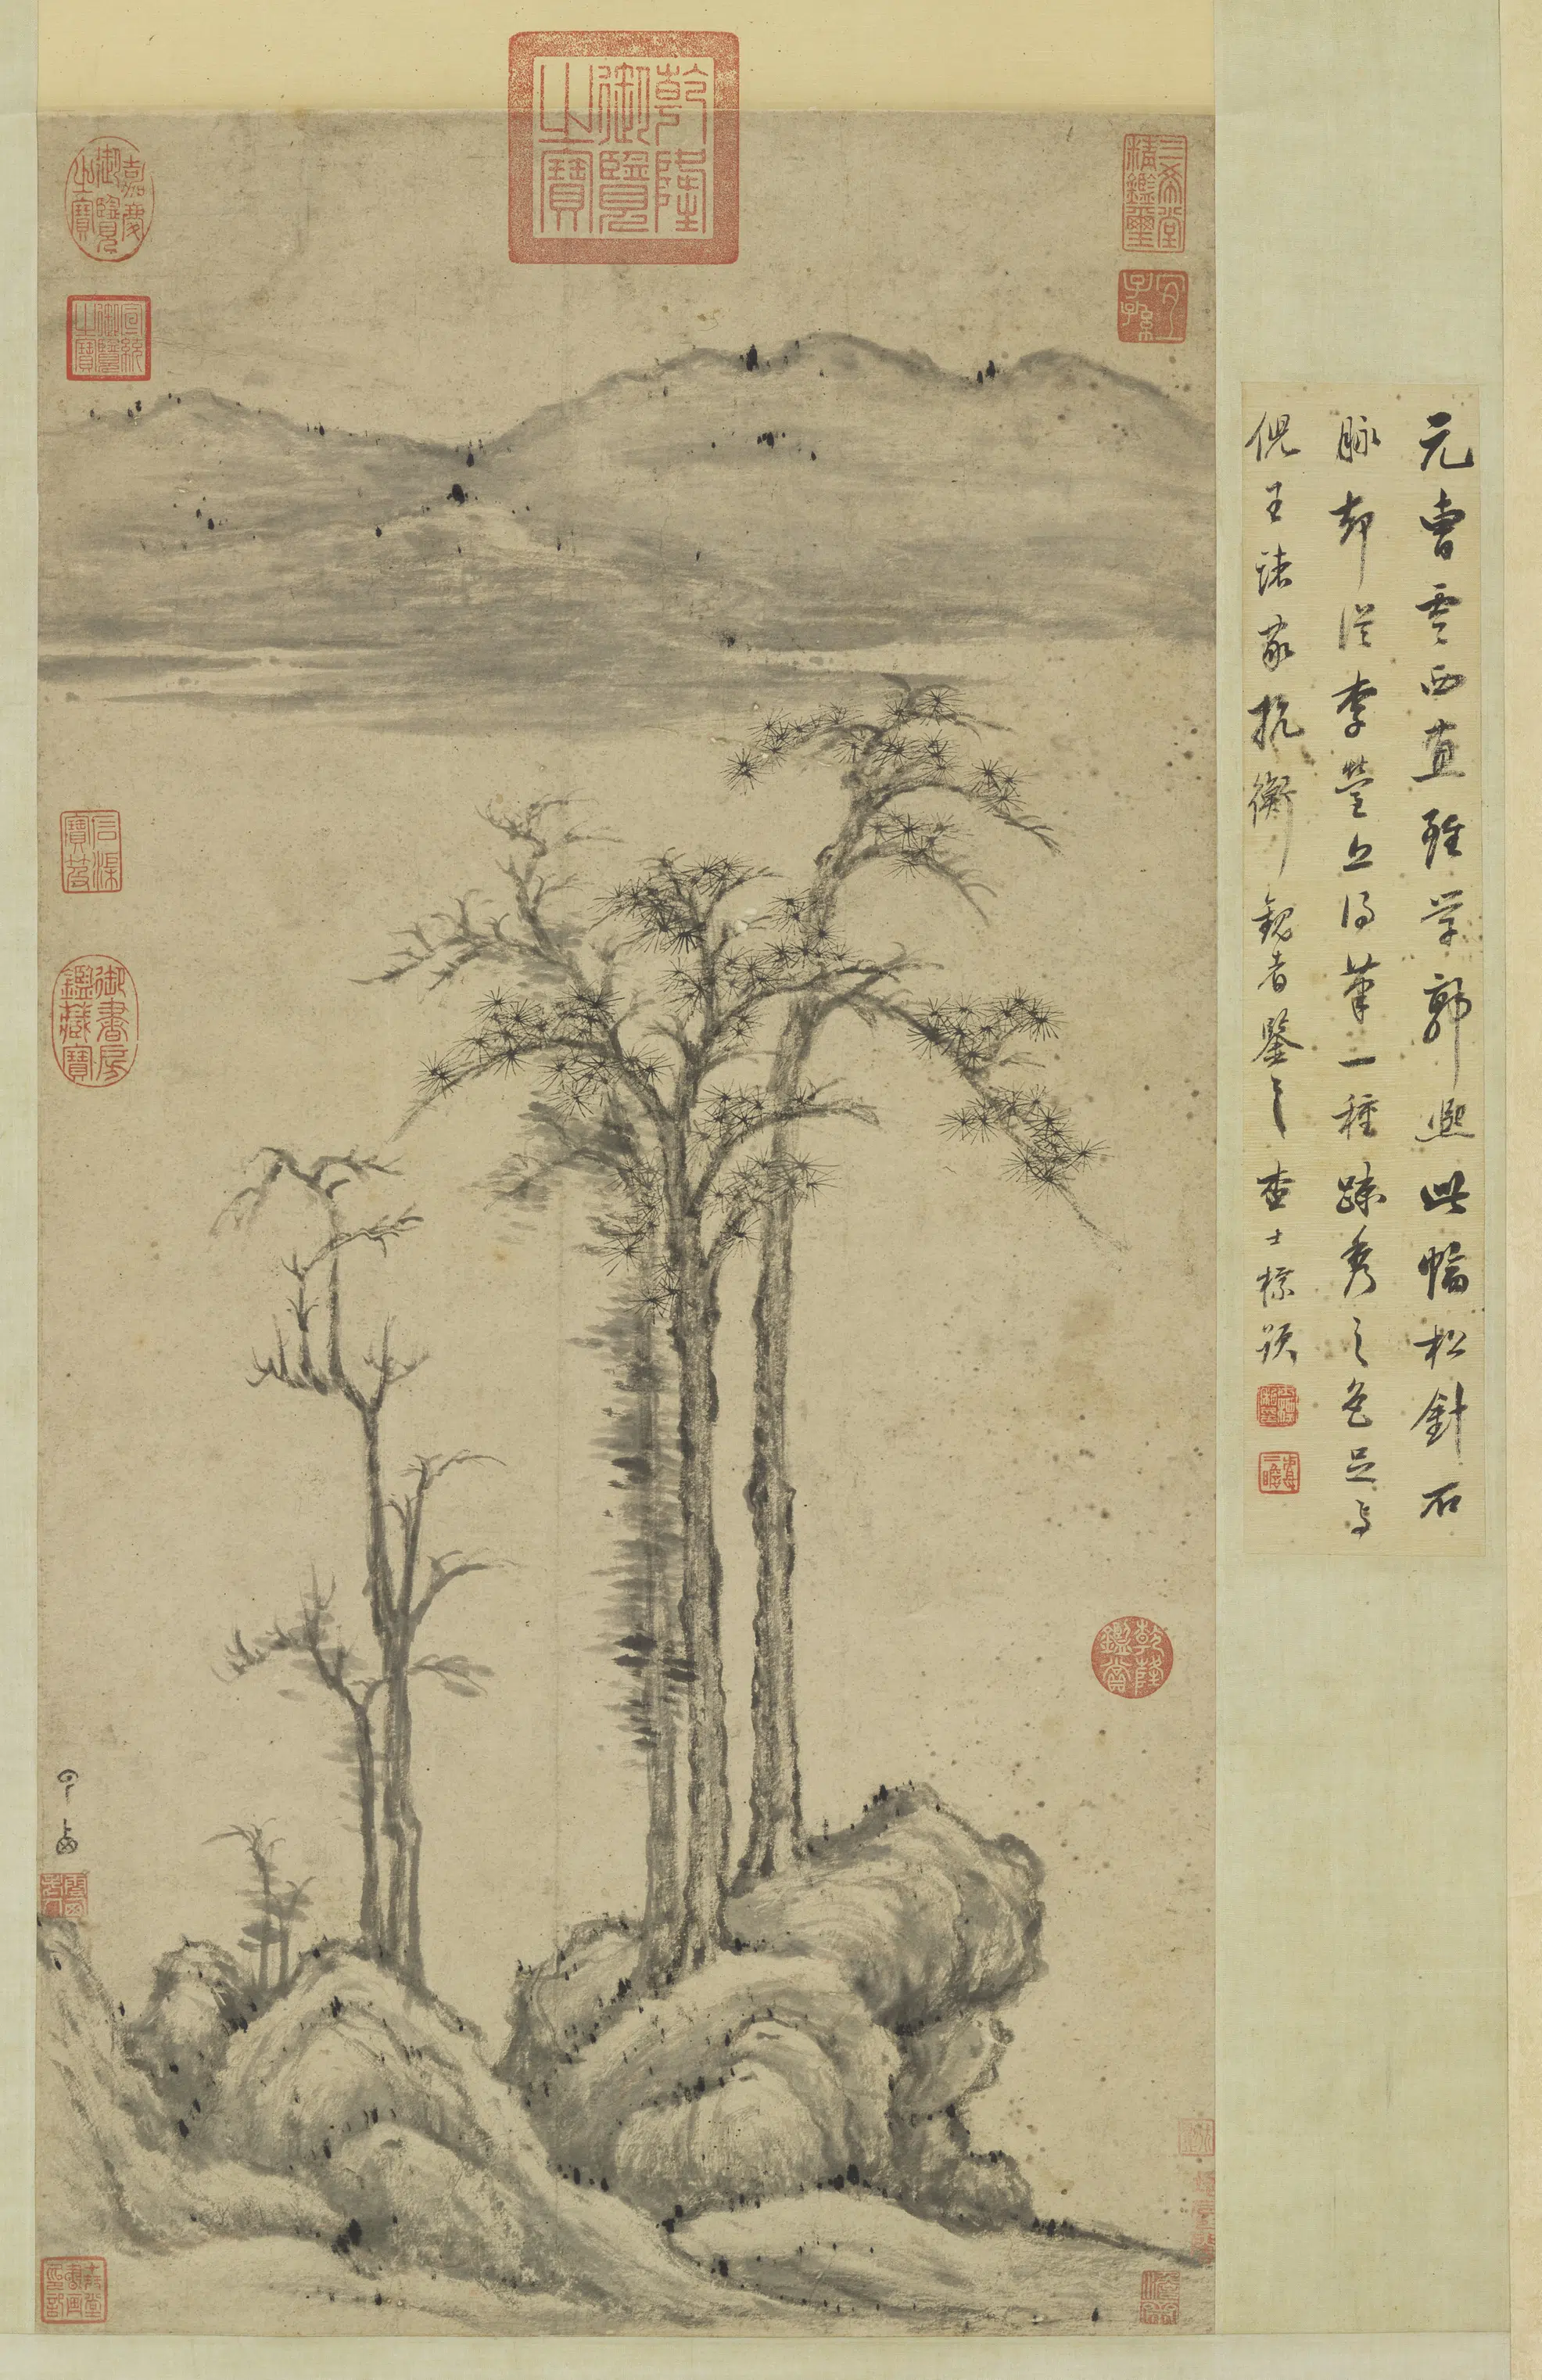 元曹雲西畫雖學郭熙此幅松針石
脉却從李營丘得筆一種踈秀之色足与
倪王諸家抗衡観者鑒之查士標題
雲西
乾隆御覽之寶
嘉慶御覽之寶
宣統御覽之寶
三希堂精鑑璽
宜子孫
石渠寶笈
御書房鑑藏寶
乾隆鑑賞